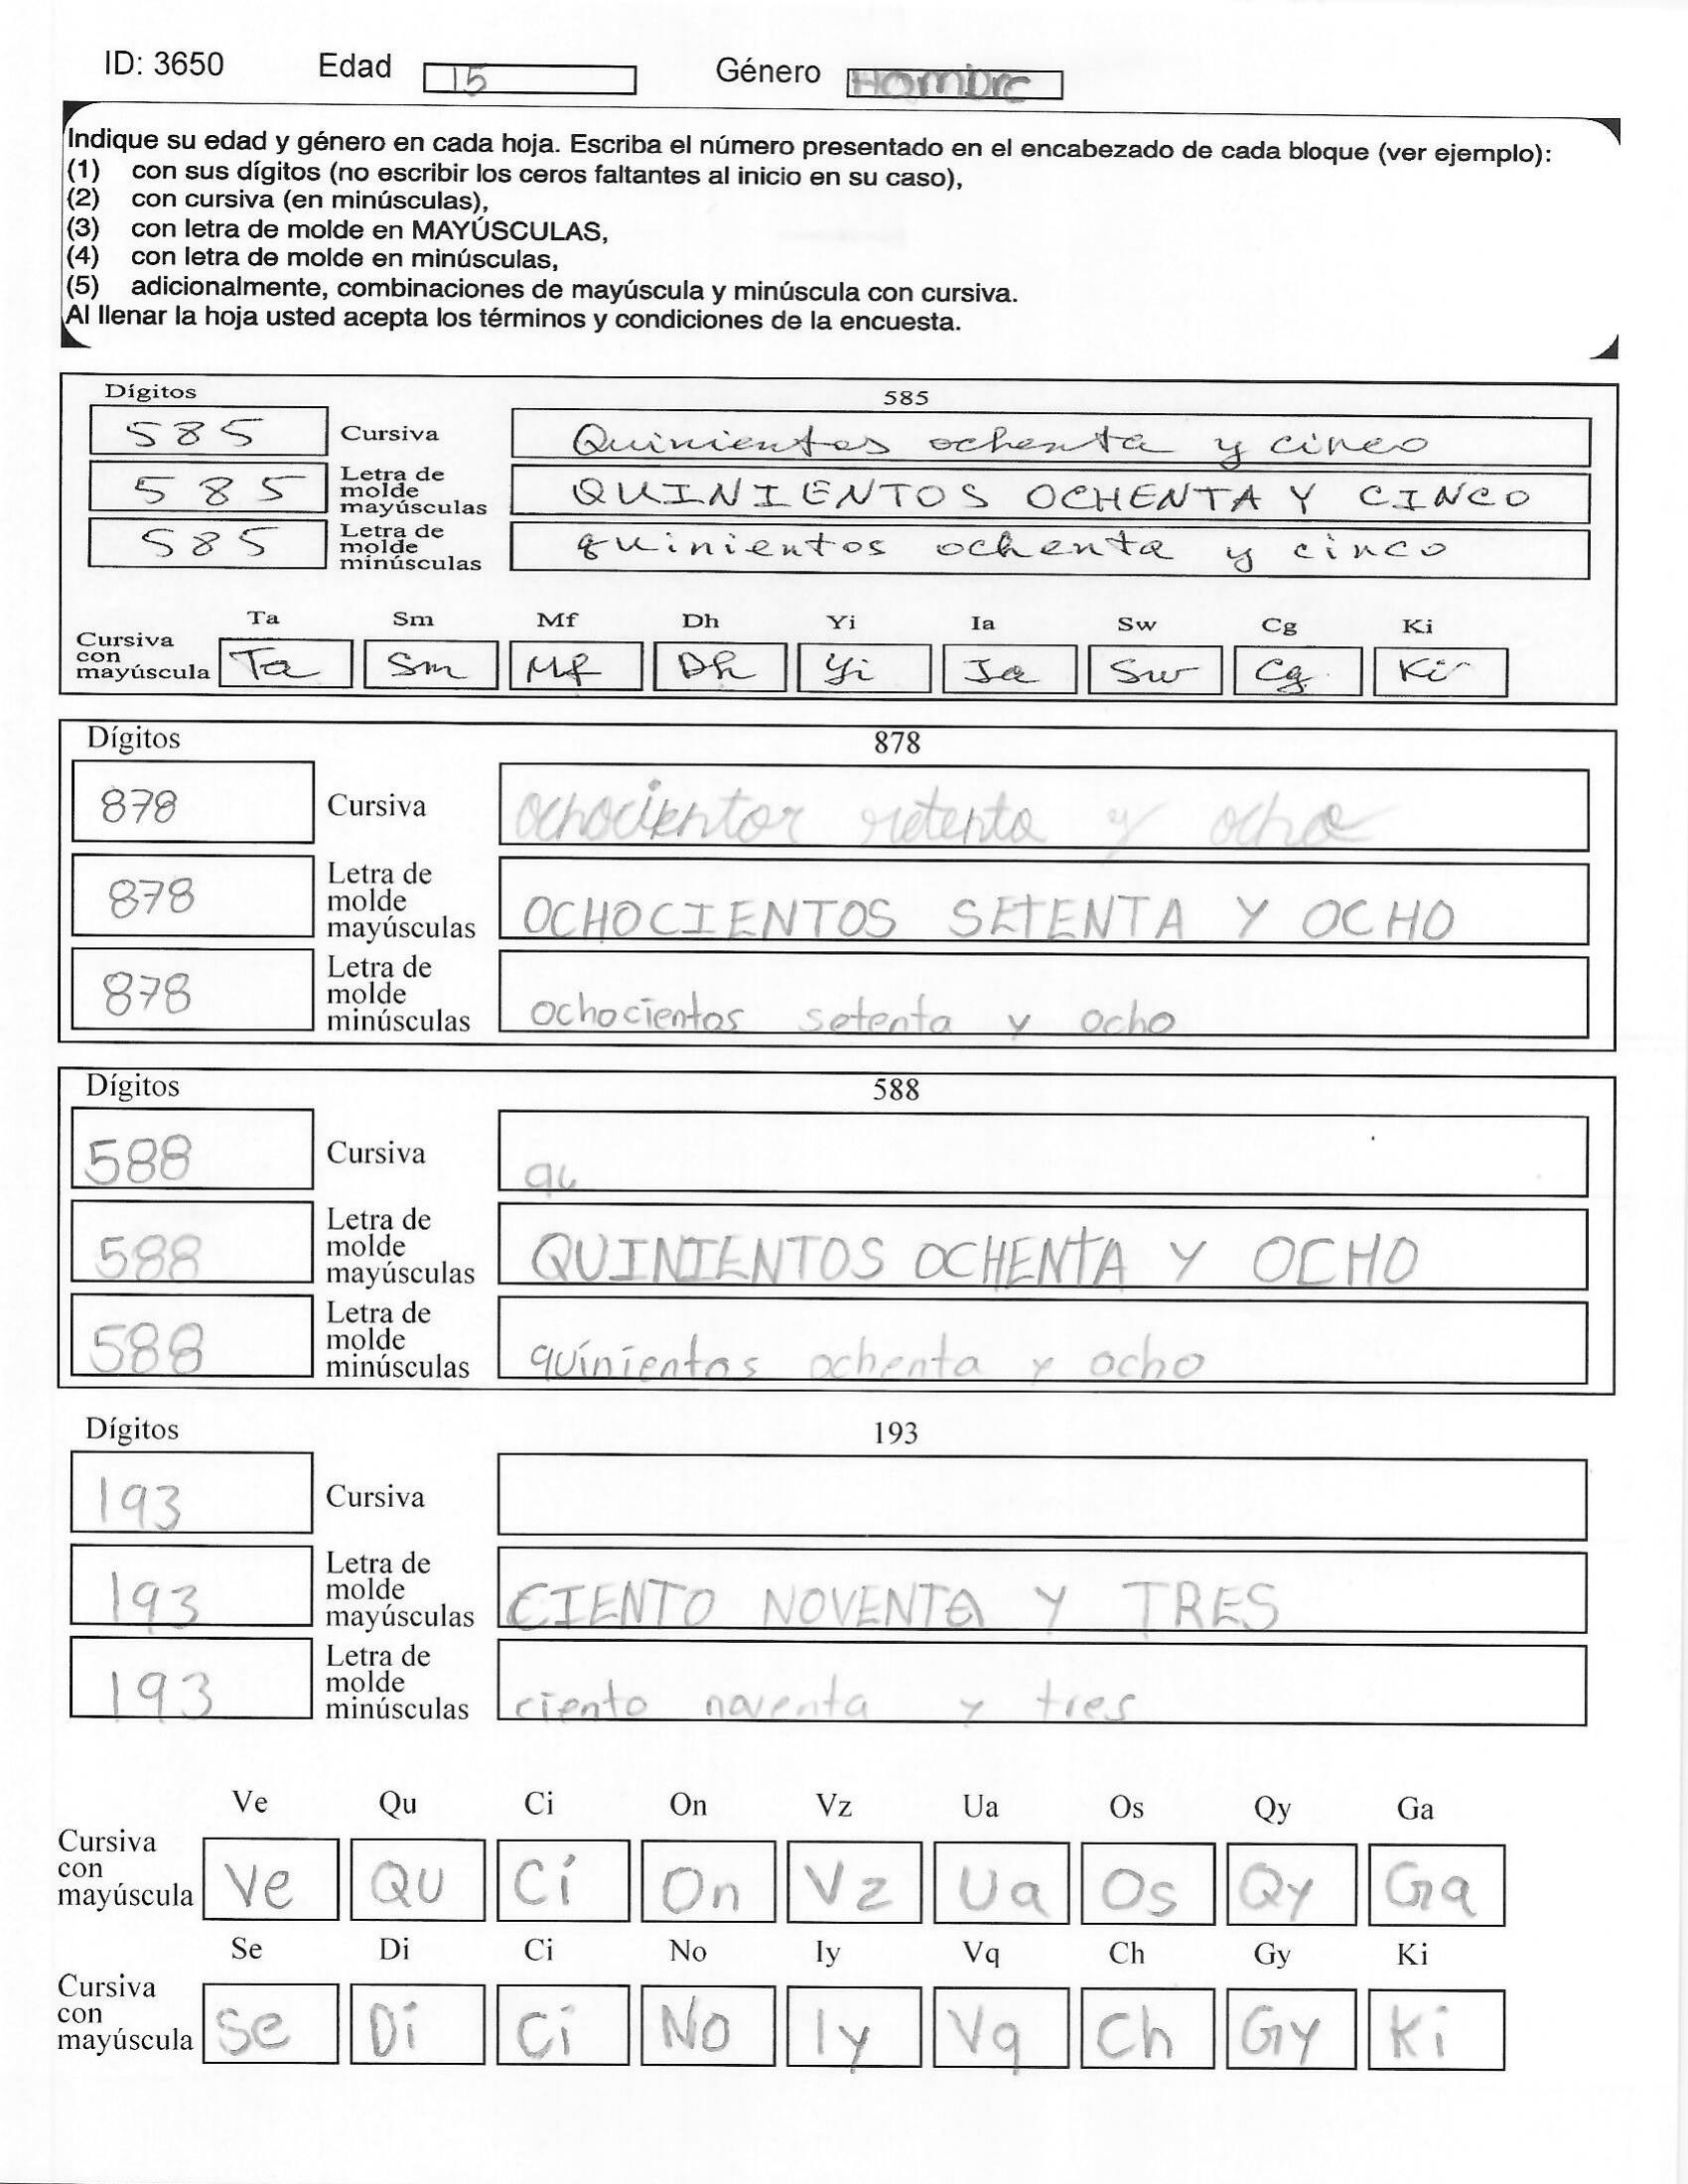 ID: 3650 Edad 15 Género Hombre
Indique su edad y género en cada hoja. Escriba el número presentado en el encabezado de cada bloque (ver ejemplo):
(1) con sus dígitos (no escribir los ceros faltantes al inicio en su caso),
(2) con cursiva (en minúsculas),
(3) con letra de molde en MAYÚSCULAS,
(4) con letra de molde en minúsculas,
(5) adicionalmente, combinaciones de mayúscula y minúscula con cursiva.
Al llenar la hoja usted acepta los términos y condiciones de la encuesta.
Dígitos 585
585 Cursiva Quinientos ochenta y cinco
585 Letra de molde mayúsculas QUINIENTOS OCHENTA Y CINCO
585 Letra de molde minúsculas quinientos ochenta y cinco
Ta Sm Mf Dh Yi Ia Sw Cg Ki
Cursiva con mayúscula Ta Sm Mf Dh Yi Ia Sw Cg Ki
Dígitos 878
878 Cursiva ochocientos setenta y ocho
878 Letra de molde mayúsculas OCHOCIENTOS SETENTA Y OCHO
878 Letra de molde minúsculas ochocientos setenta y ocho
Dígitos 588
588 Cursiva qu
588 Letra de molde mayúsculas QUINIENTOS OCHENTA Y OCHO
588 Letra de molde minúsculas quinientos ochenta y ocho
Dígitos 193
193 Cursiva
193 Letra de molde mayúsculas CIENTO NOVENTA Y TRES
193 Letra de molde minúsculas ciento noventa y tres
Ve Qu Ci On Vz Ua Os Qy Ga
Cursiva con mayúscula Ve QU Ci On Vz Ua Os Qy Ga
Se Di Ci No Iy Vq Ch Gy Ki
Cursiva con mayúscula Se Di Ci No Iy Vq Ch Gy Ki